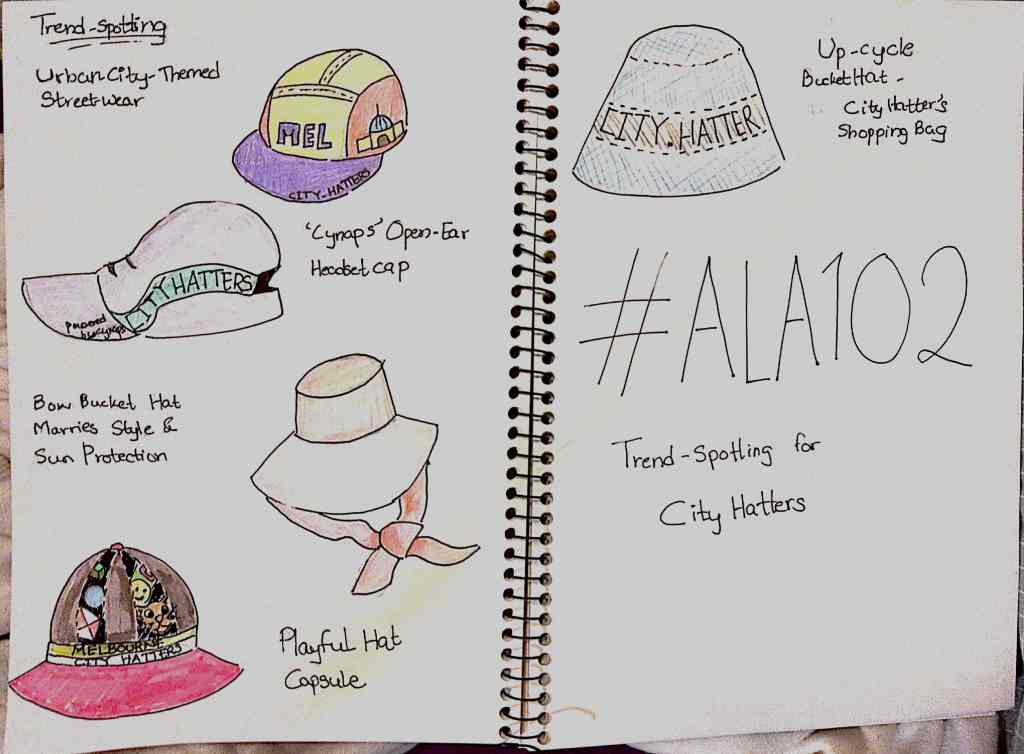 Trend-Spotting
Urban City-Themed
Streetwear
MEL
CITY-HATTERS
'Cynaps' Open-Ear
Headset cap
CITY HATTERS
Powered
by Cynaps
Bow Bucket Hat
Marries Style &
Sun Protection
MELBOURNE
CITY HATTERS
Playful Hat
Capsule
CITY.HATTER
Up-cycle
Bucket Hat -
City Hatter's
Shopping Bag
#ALA102
Trend-Spotting for
City Hatters